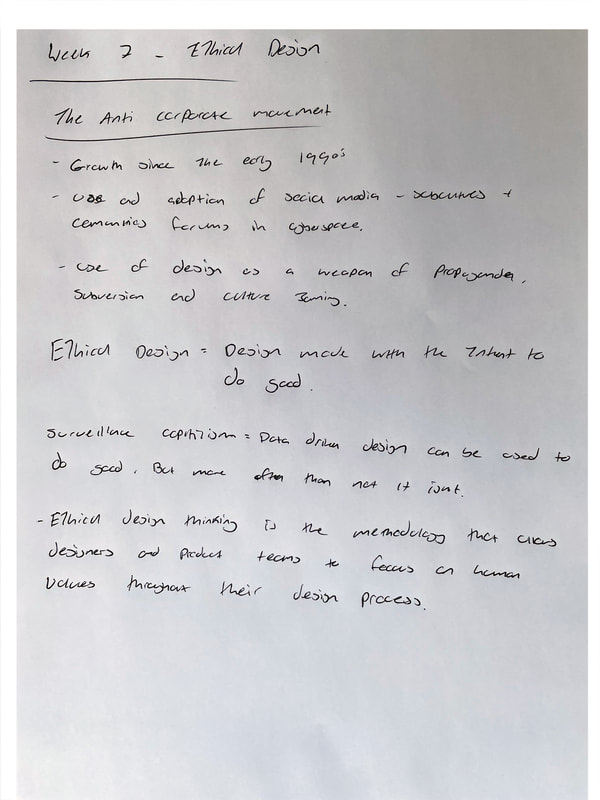 Week 7 - Ethical Design
The Anti corporate movement
- Growth since the early 1990's
- use and adoption of social media - subcultures +
communities forums in cyberspace.
- use of design as a weapon of Propaganda,
Subversion and culture Jaming.
Ethical Design = Design made with the Intent to
do good.
Surveillance capitilism = Data driven design can be used to
do good, But more often than not it isnt.
- Ethical design thinking is the methodology that allows
designers and product teams to focus on human
values throughout their design process.